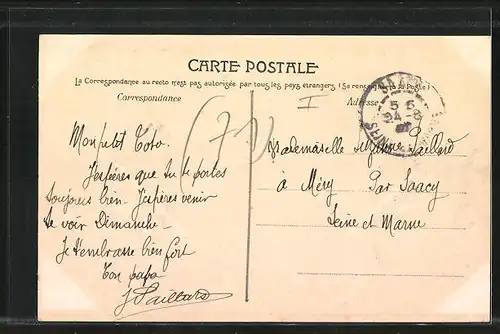 CARTE POSTALE
La Correspondance au recto n'est pas autorisée par tous les pays étrangers (Se renseigner à la Poste)
Correspondance
Adresse
(71)
I
5 5
24-8
Mon petit Toto.
J'espères que tu te portes
toujours bien. J'espères venir
te voir Dimanche-
Je t'embrasse bien fort
Ton papa
J Paillard
Mademoiselle Paillard
à Méry Par Saacy
Seine et Marne